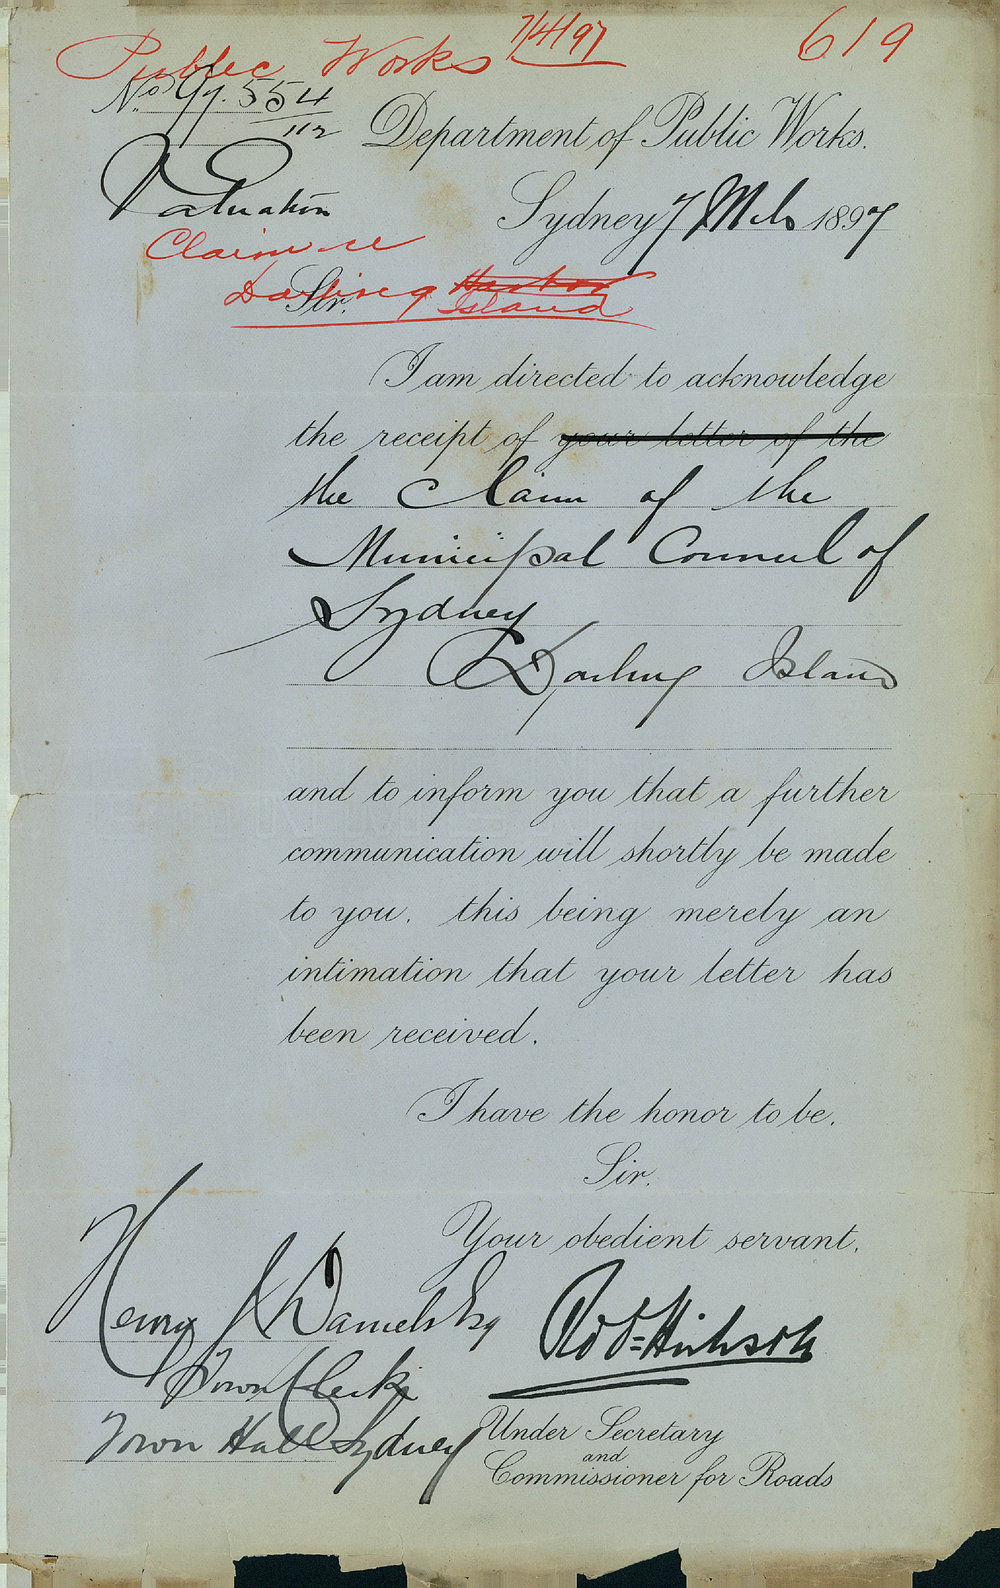 Public Works 7/4/97 619
No. 97.554
112
Department of Public Works.
Valuation
Sydney 7 Mch 1897
Claim re
Sir.
Darling Harbor
Island
I am directed to acknowledge
the receipt of your letter of the
the Claim of the
Municipal Council of
Sydney
Darling Island
and to inform you that a further
communication will shortly be made
to you. this being merely an
intimation that your letter has
been received.
I have the honor to be.
Sir.
Your obedient servant.
Henry J Daniels Esq
Robt. Hickson
Town Clerk
Town Hall Sydney
Under Secretary
and
Commissioner for Roads